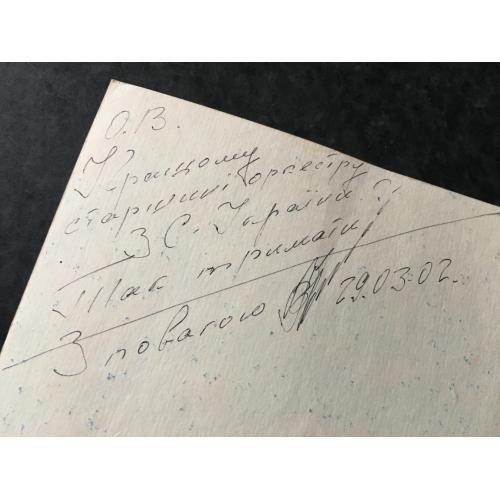 О.В.
Кращому
старшині оркестру
З С. України
Так тримати
З повагою 29.03.02.